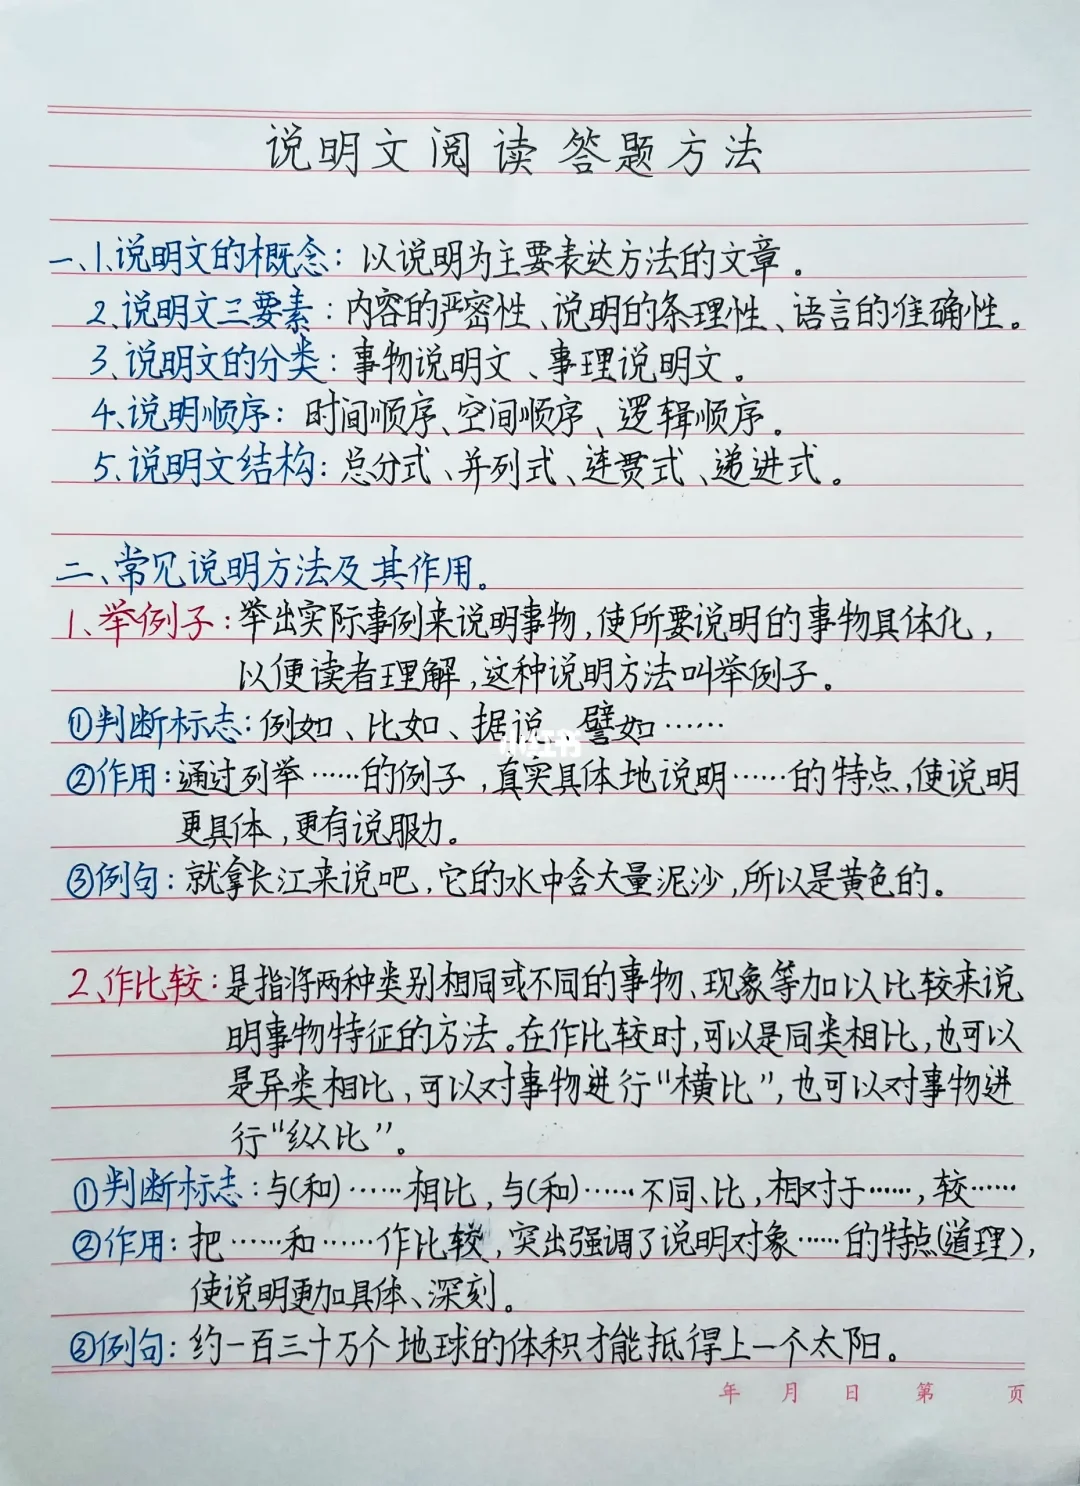 说明文阅读答题方法
一、1.说明文的概念：以说明为主要表达方法的文章。
2、说明文三要素：内容的严密性、说明的条理性、语言的准确性。
3、说明文的分类：事物说明文、事理说明文。
4、说明顺序：时间顺序、空间顺序、逻辑顺序。
5、说明文结构：总分式、并列式、连贯式、递进式。
二、常见说明方法及其作用。
1、举例子：举出实际事例来说明事物，使所要说明的事物具体化，
以便读者理解，这种说明方法叫举例子。
①判断标志：例如、比如、据说、譬如……
小红书
②作用：通过列举……的例子，真实具体地说明……的特点，使说明
更具体，更有说服力。
③例句：就拿长江来说吧，它的水中含大量泥沙，所以是黄色的。
2、作比较：是指将两种类别相同或不同的事物、现象等加以比较来说
明事物特征的方法。在作比较时，可以是同类相比，也可以
是异类相比，可以对事物进行“横比”，也可以对事物进
行“纵比”。
①判断标志：与(和)……相比，与(和)……不同、比，相对于……，较……
②作用：把……和……作比较，突出强调了说明对象……的特点(道理)，
使说明更加具体、深刻。
③例句：约一百三十万个地球的体积才能抵得上一个太阳。
年 月 日 第 页